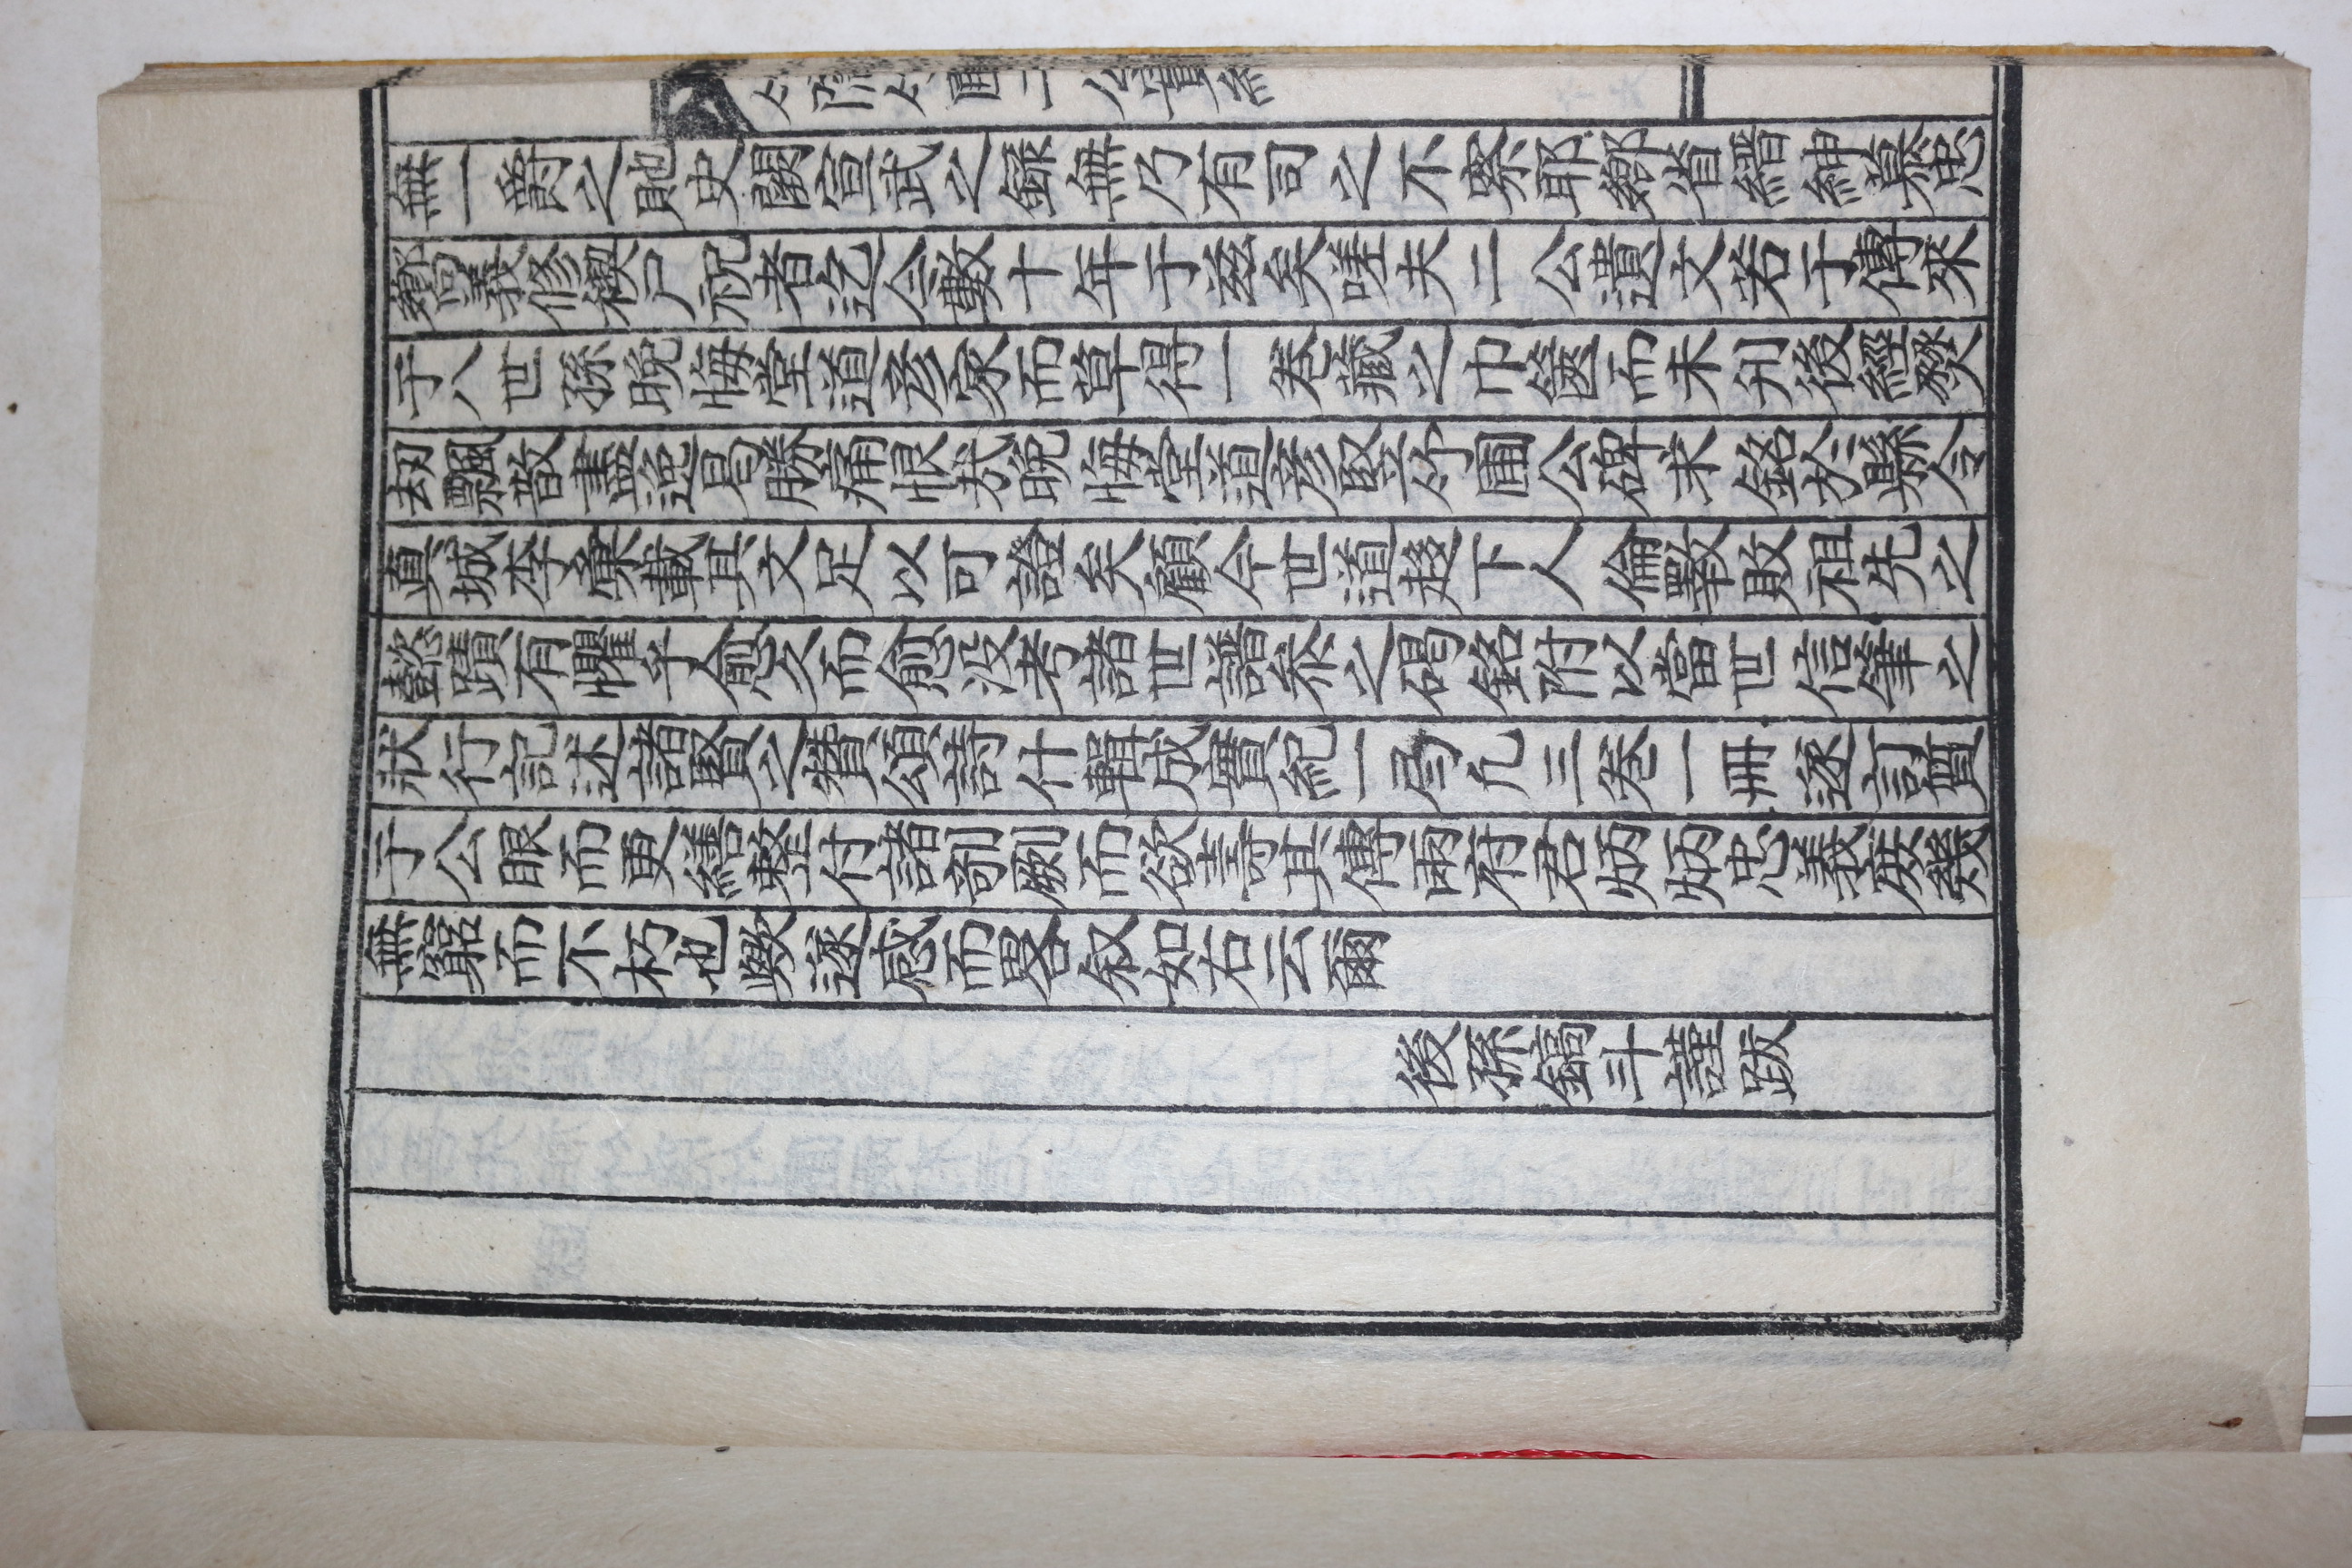 竹隱竹圃二公實紀
無一爵之貤史闕宣武之錄無乃有司之不察耶鄕省縉紳慕忠
嚮義修禊尸祝者迄今數十年于玆矣嗟夫二公遺文若干傳來
于八世孫晩悔堂道彦家而草得一卷藏之巾篋而未刋後經燹
刼飄散盡逸曷勝痛恨㢤晩悔堂道彦竪竹圃公碑求銘於縣令
眞城李彙載其文足以可證矣顧今世道趍下人倫斁敗祖先之
懿蹟有懼乎愈久而愈没考諸世譜叅之碣銘附以當世信筆之
狀行記述諸賢之贊頌詩什輯成實紀一局凢三卷一冊遂訂質
于公眼而更繕整付諸剞劂而欲壽其傳兩府君炳炳忠義庶幾
無窮而不朽也歟遂感而畧叙如右云爾
後孫鎬斗謹跋